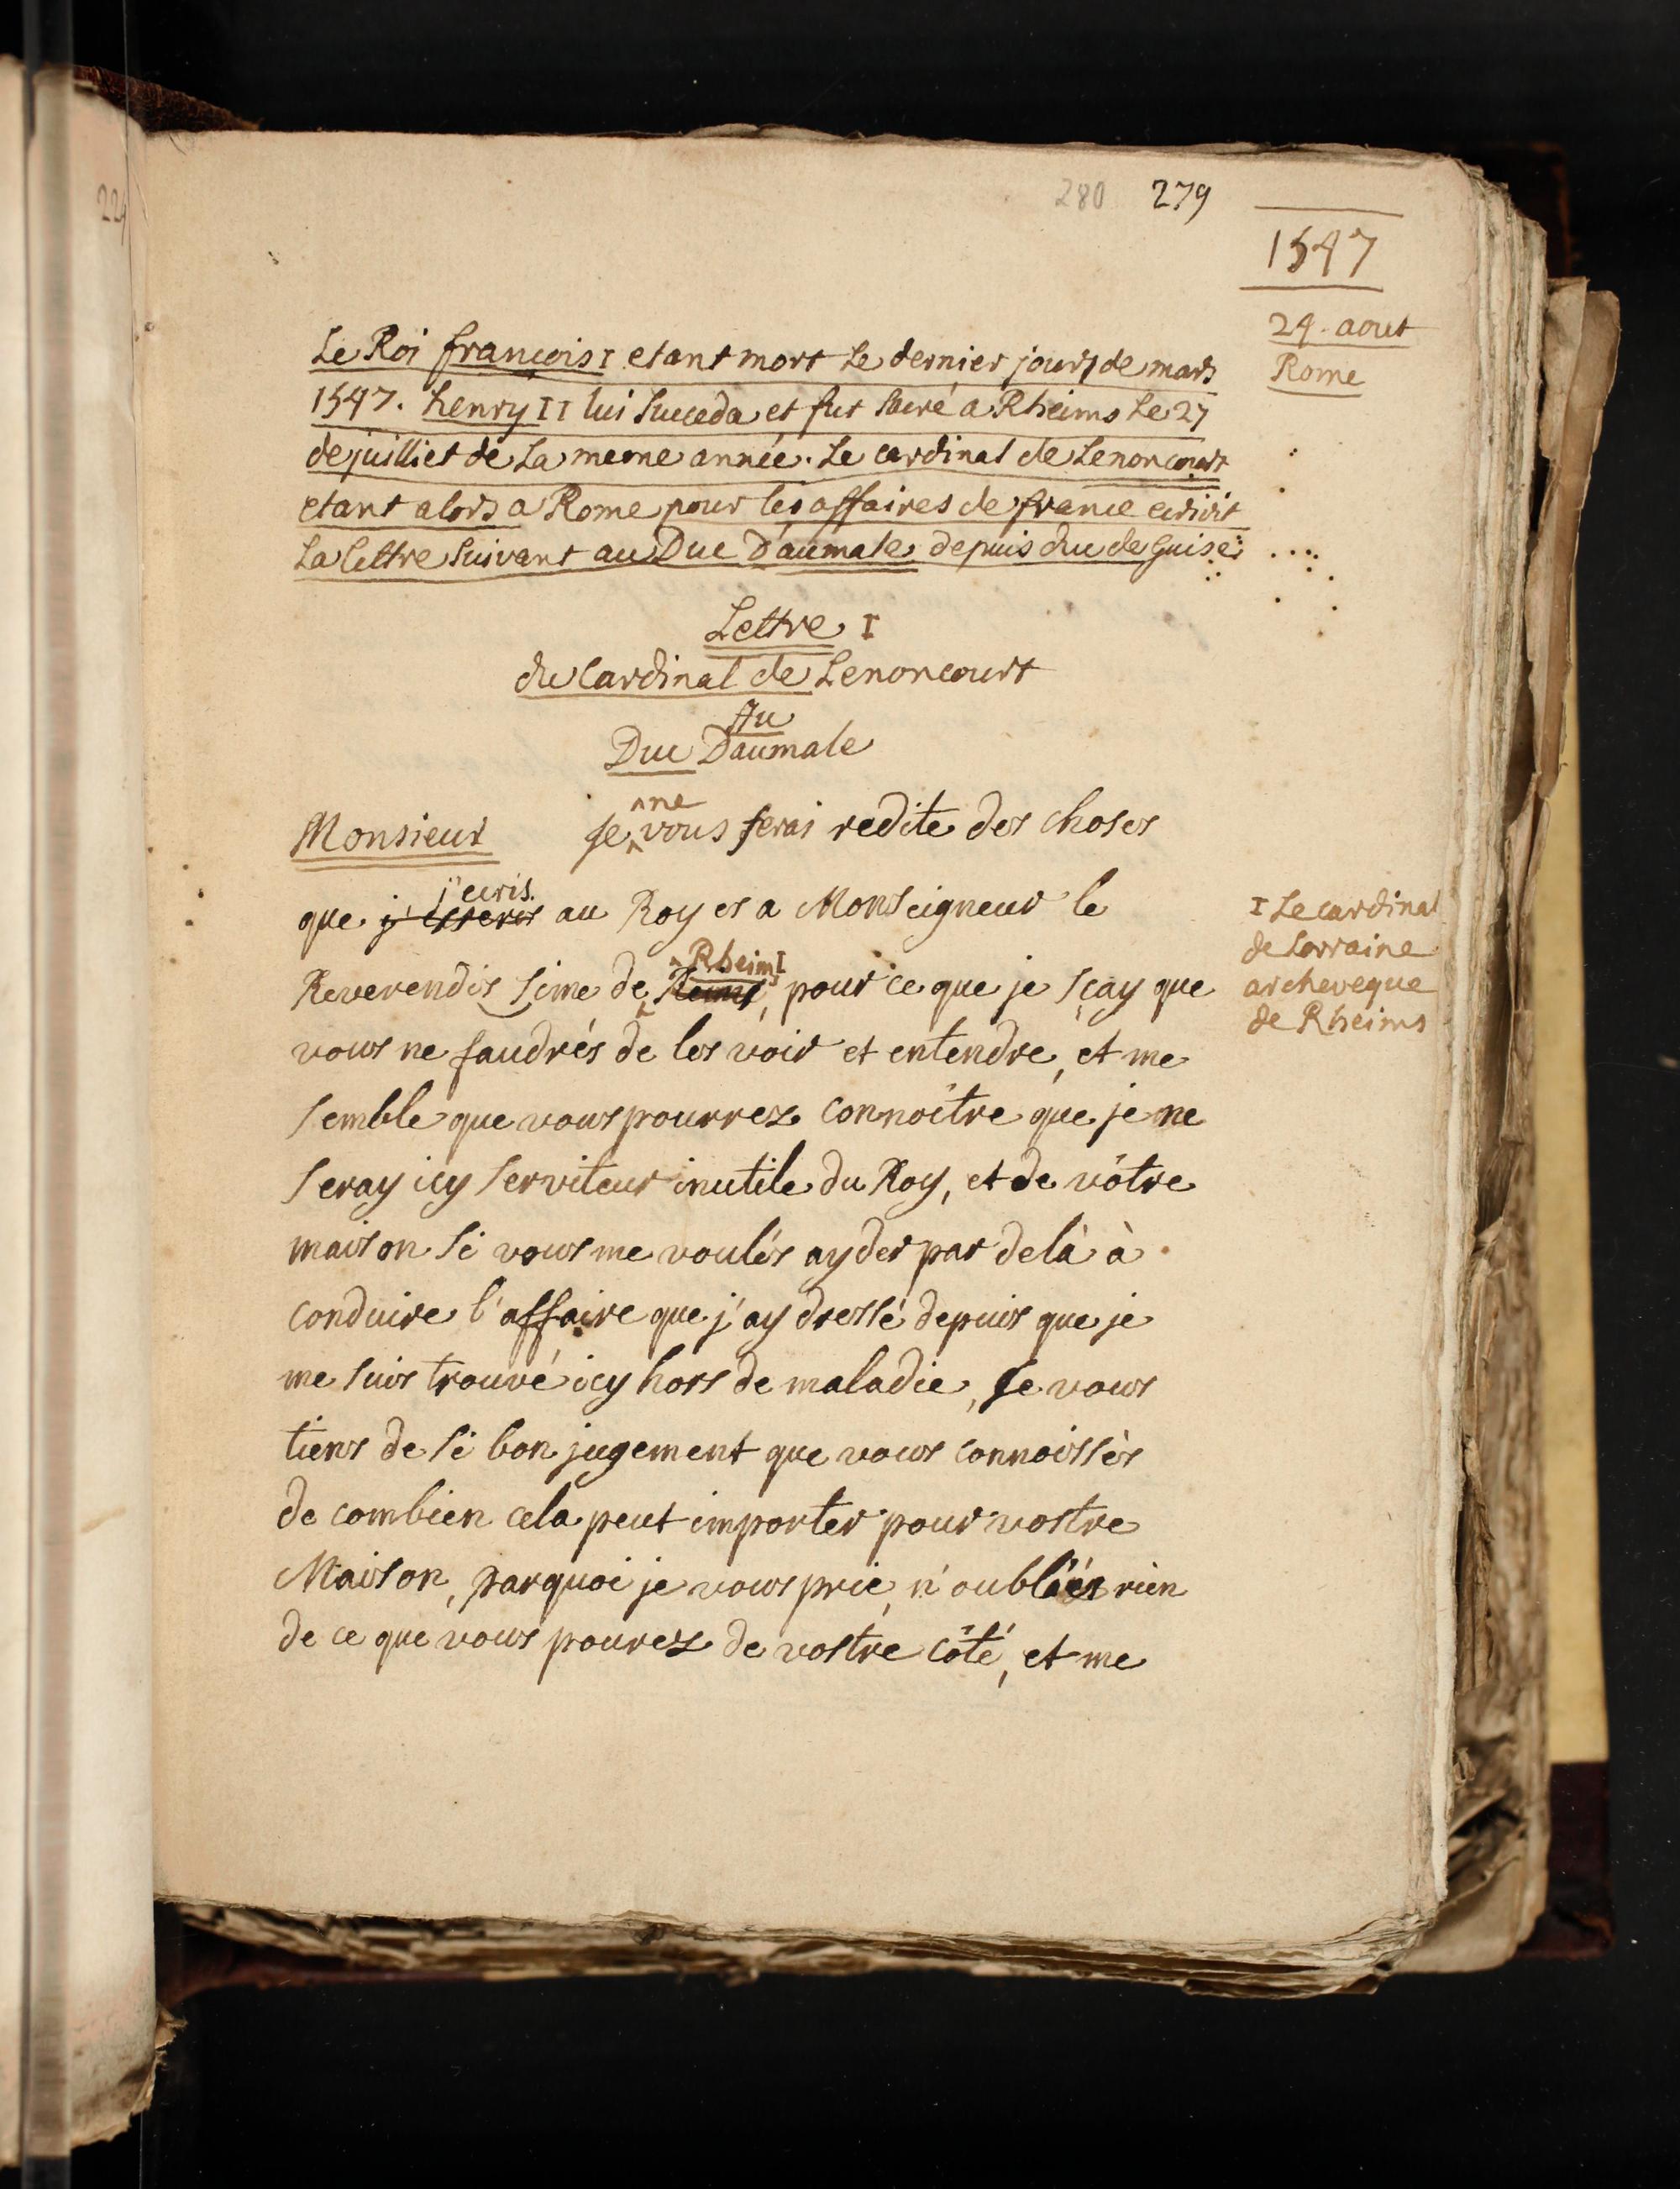 280 279
1547
24. aout
Rome
Le Roi françois I etant mort Le dernier jour de mars
1547. henry II lui succeda et fut sacré a Rheims Le 27
de juilliet de La meme année. Le cardinal de Lenoncourt
etant alors a Rome pour les affaires de france ecrivit
La lettre suivant au Duc D'aumale depuis duc de Guise
Lettre I
du Cardinal de Lenoncourt
Au
Duc Daumale
Monsieur Je ne vous ferai redite des choses
que j'ecris au Roy et a Monseigneur le
Reverendissime de Rheims I, pour ce que je sçay que
vous ne faudrés de les voir et entendre, et me
semble que vous pourrez connoître que je ne
seray icy serviteur inutile du Roy, et de vôtre
maison si vous me voulés ayder par delà à
conduire l'affaire que j'ay dressé depuis que je
me suis trouvé icy hors de maladie, Je vous
tiens de si bon jugement que vous connoissés
de combien cela peut importer pour vostre
Maison, parquoi je vous prie, n'oubliés rien
de ce que vous pourez de vostre côté, et me
I Le cardinal
de Lorraine
archeveque
de Rheims